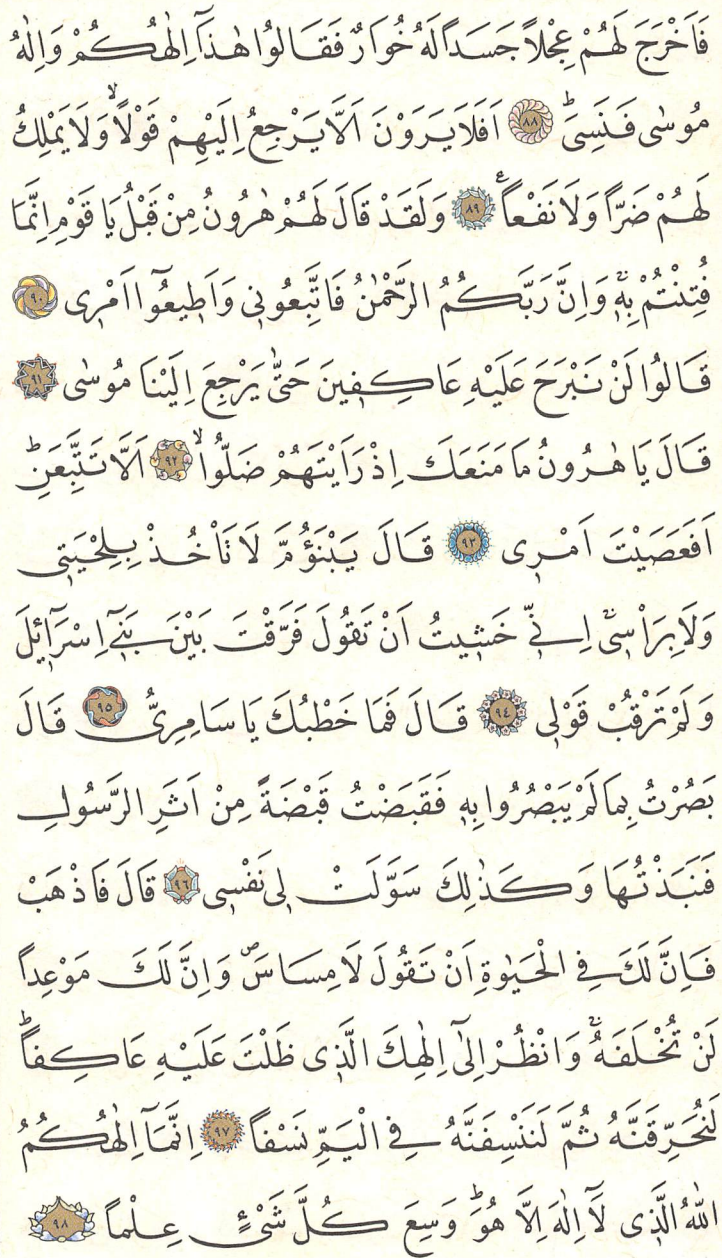 فَاَخْرَجَ لَهُمْ عِجْلاً جَسَداً لَهُ خُوَارٌ فَقَالُوا هٰذَٓا اِلٰهُكُمْ وَاِلٰهُ
مُوسٰى فَنَسِىَۜ ﴿٨٨﴾ اَفَلَا يَرَوْنَ اَلَّا يَرْجِعُ اِلَيْهِمْ قَوْلاًۙ وَلَا يَمْلِكُ
لَهُمْ ضَرّاً وَلَا نَفْعاً۟ ﴿٨٩﴾ وَلَقَدْ قَالَ لَهُمْ هٰرُونُ مِنْ قَبْلُ يَا قَوْمِ اِنَّمَا
فُتِنْتُمْ بِه۪ۚ وَاِنَّ رَبَّكُمُ الرَّحْمٰنُ فَاتَّبِعُون۪ى وَاَط۪يعُٓوا اَمْر۪ى ﴿٩٠﴾
قَالُوا لَنْ نَبْرَحَ عَلَيْهِ عَاكِف۪ينَ حَتّٰى يَرْجِعَ اِلَيْنَا مُوسٰى ﴿٩١﴾
قَالَ يَا هٰرُونُ مَا مَنَعَكَ اِذْ رَاَيْتَهُمْ ضَلُّواۙ ﴿٩٢﴾ اَلَّا تَتَّبِعَنِۜ
اَفَعَصَيْتَ اَمْر۪ى ﴿٩٣﴾ قَالَ يَبْنَؤُمَّ لَا تَاْخُذْ بِلِحْيَت۪ى
وَلَا بِرَاْس۪ىۚ اِنّ۪ى خَش۪يتُ اَنْ تَقُولَ فَرَّقْتَ بَيْنَ بَن۪ٓى اِسْرَٓائ۪لَ
وَلَمْ تَرْقُبْ قَوْل۪ى ﴿٩٤﴾ قَالَ فَمَا خَطْبُكَ يَا سَامِرِىُّ ﴿٩٥﴾ قَالَ
بَصُرْتُ بِمَا لَمْ يَبْصُرُوا بِه۪ فَقَبَضْتُ قَبْضَةً مِنْ اَثَرِ الرَّسُولِ
فَنَبَذْتُهَا وَكَذٰلِكَ سَوَّلَتْ ل۪ى نَفْس۪ى ﴿٩٦﴾ قَالَ فَاذْهَبْ
فَاِنَّ لَكَ فِى الْحَيٰوةِ اَنْ تَقُولَ لَا مِسَاسَۖ وَاِنَّ لَكَ مَوْعِداً
لَنْ تُخْلَفَهُۚ وَانْظُرْ اِلٰٓى اِلٰهِكَ الَّذ۪ى ظَلْتَ عَلَيْهِ عَاكِفاًۜ
لَنُحَرِّقَنَّهُ ثُمَّ لَنَنْسِفَنَّهُ فِى الْيَمِّ نَسْفاً ﴿٩٧﴾ اِنَّمَٓا اِلٰهُكُمُ
اللّٰهُ الَّذ۪ى لَٓا اِلٰهَ اِلَّا هُوَۜ وَسِعَ كُلَّ شَىْءٍ عِلْماً ﴿٩٨﴾